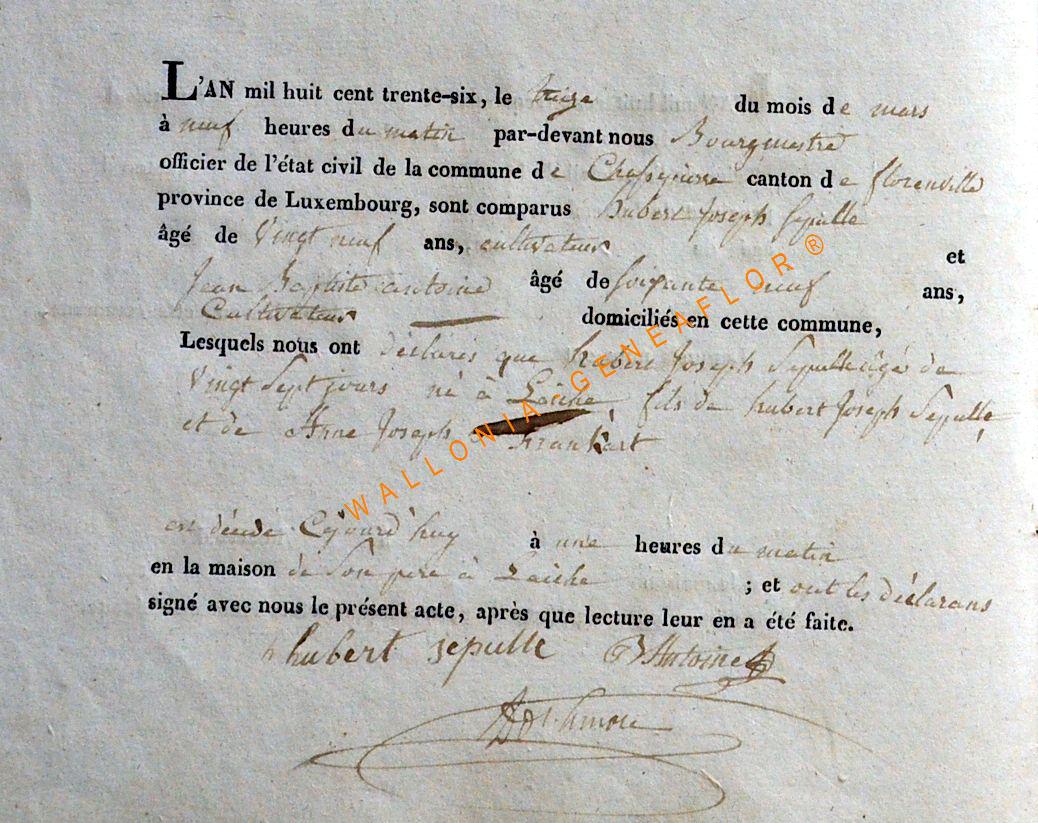 L'AN mil huit cent trente-six, le treize du mois de mars
à neuf heures du matin par-devant nous Bourgmestre
officier de l'état civil de la commune de Chassepierre canton de florenville
province de Luxembourg, sont comparus hubert Joseph Sepulle
âgé de Vingt neuf ans, cultivateur et
Jean Baptiste antoine âgé de soixante neuf ans,
Cultivateur domiciliés en cette commune,
Lesquels nous ont déclarés que hubert Joseph Sepulle âgé de
Vingt Sept jours né à Laiche, fils de hubert Joseph Sepulle
et de Anne Joseph Frankart
est décédé Cejourd'huy à une heures du matin
en la maison de Son père à Laiche ; et ont les déclarans
signé avec nous le présent acte, après que lecture leur en a été faite.
hubert sepulle Antoine
WALLONIA GENEAFLOR ®